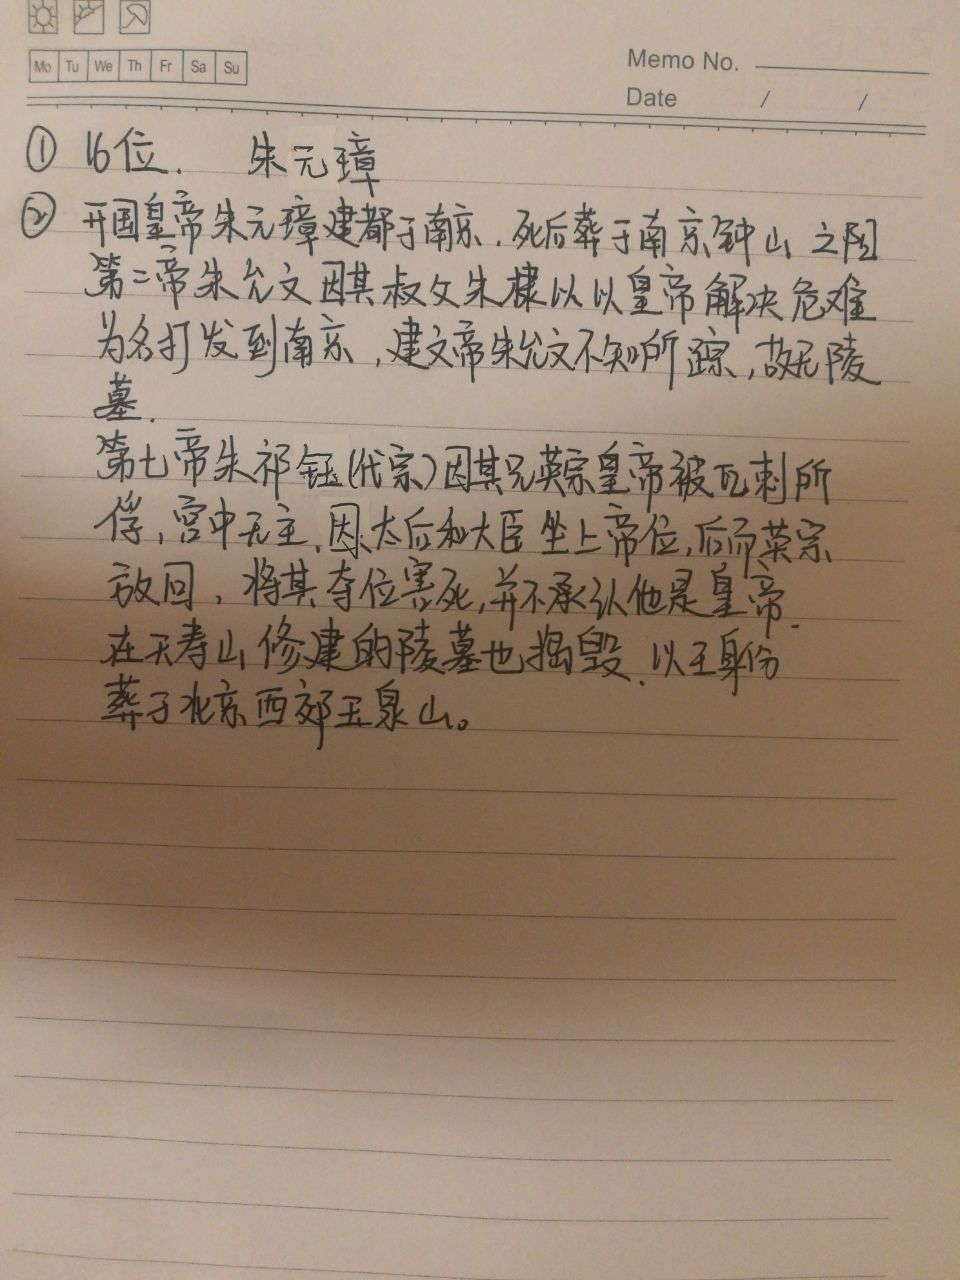 Mo Tu We Th Fr Sa Su
Memo No.
Date / /
① 16位. 朱元璋
② 开国皇帝朱元璋建都于南京.死后葬于南京钟山之阳
第二帝朱允文因其叔父朱棣以以皇帝解决危难
为名打发到南京,建文帝朱允文不知所踪,故无陵
墓.
第七帝朱祁钰(代宗)因其兄英宗皇帝被瓦刺所
俘,宫中无主,因太后和大臣坐上帝位,后而英宗
放回,将其夺位害死,并不承认他是皇帝.
在天寿山修建的陵墓也捣毁.以王身份
葬于北京西郊玉泉山。